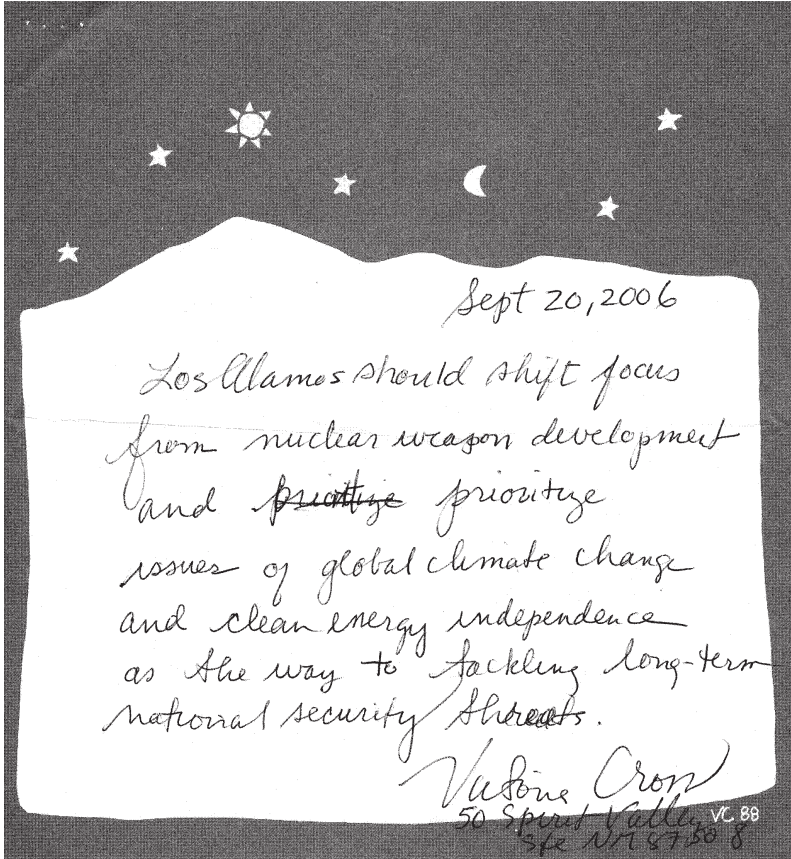 Sept 20, 2006
Los Alamos should shift focus
from nuclear weapon development
and prioritize prioritize
issues of global climate change
and clean energy independence
as the way to tackling long-term
national security threats.
50 Spirit Valley
Sfe NM 87508
VC 88